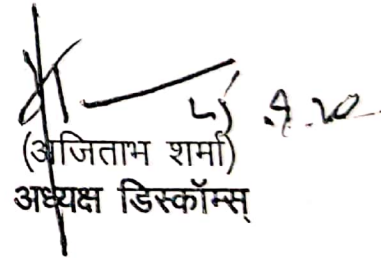 (अजिताभ शर्मा)
अध्यक्ष डिस्कॉम्स्